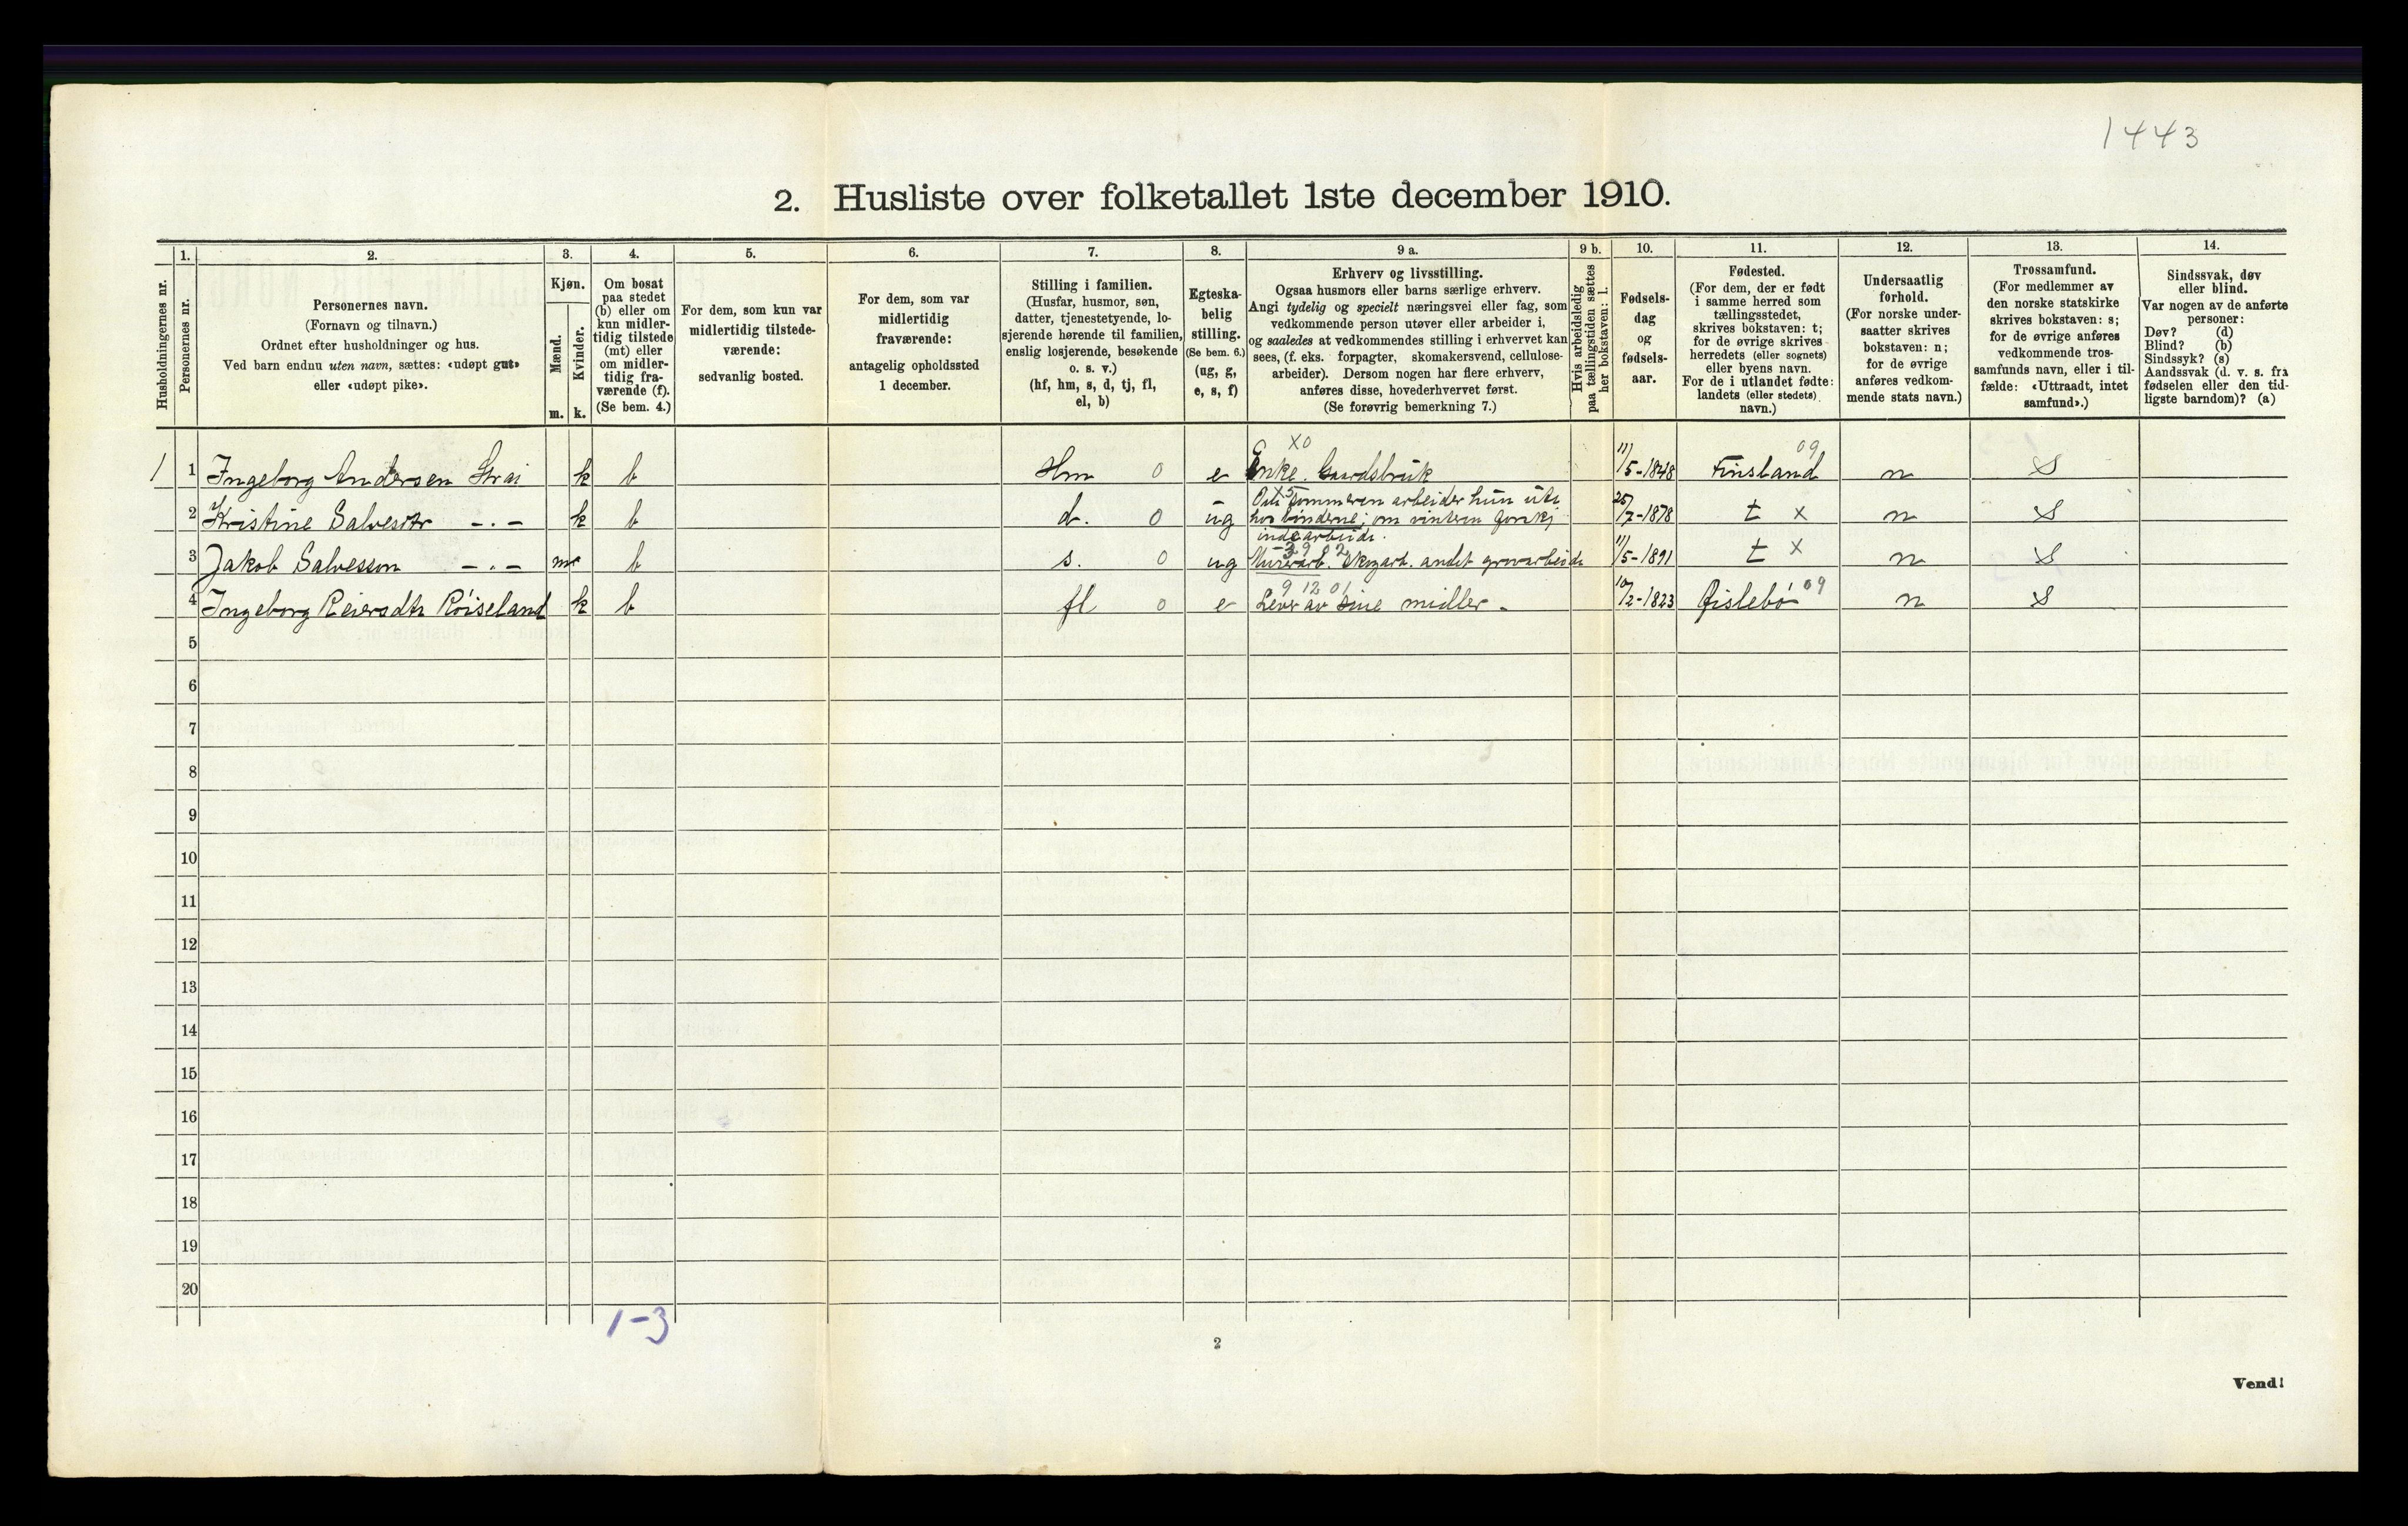 1443
2. Husliste over folketallet 1ste december 1910.
Husholdningernes nr.
1.
Personernes nr.
2.
Personernes navn.
(Fornavn og tilnavn.)
Ordnet efter husholdninger og hus.
Ved barn endnu uten navn, sættes: «udøpt gut»
eller «udøpt pike».
3.
Kjøn.
Mænd.
Kvinder.
m. k.
4.
Om bosat
paa stedet
(b) eller om
kun midler-
tidig tilstede
(mt) eller
om midler-
tidig fra-
værende (f).
(Se bem. 4.)
5.
For dem, som kun var
midlertidig tilstede-
værende:
sedvanlig bosted.
6.
For dem, som var
midlertidig
fraværende:
antagelig opholdssted
1 december.
7.
Stilling i familien.
(Husfar, husmor, søn,
datter, tjenestetyende, lo-
sjerende hørende til familien,
enslig losjerende, besøkende
o. s. v.)
(hf, hm, s, d, tj, fl,
el, b)
8.
Egteska-
belig
stilling.
(Se bem. 6.)
(ug, g,
e, s, f)
9 a.
Erhverv og livsstilling.
Ogsaa husmors eller barns særlige erhverv.
Angi tydelig og specielt næringsvei eller fag, som
vedkommende person utøver eller arbeider i,
og saaledes at vedkommendes stilling i erhvervet kan
sees, (f. eks. forpagter, skomakersvend, cellulose-
arbeider). Dersom nogen har flere erhverv,
anføres disse, hovederhvervet først.
(Se forøvrig bemerkning 7.)
9 b.
Hvis arbeidsledig
paa tællingstiden sættes
her bokstaven: l.
10.
Fødsels-
dag
og
fødsels-
aar.
11.
Fødested.
(For dem, der er født
i samme herred som
tællingsstedet,
skrives bokstaven: t;
for de øvrige skrives
herredets (eller sognets)
eller byens navn.
For de i utlandet fødte:
landets (eller stedets)
navn.)
12.
Undersaatlig
forhold.
(For norske under-
saatter skrives
bokstaven: n;
for de øvrige
anføres vedkom-
mende stats navn.)
13.
Trossamfund.
(For medlemmer av
den norske statskirke
skrives bokstaven: s;
for de øvrige anføres
vedkommende tros-
samfunds navn, eller i til-
fælde: «Uttraadt, intet
samfund».)
14.
Sindssvak, døv
eller blind.
Var nogen av de anførte
personer:
Døv? (d)
Blind? (b)
Sindssyk? (s)
Aandssvak (d. v. s. fra
fødselen eller den tid-
ligste barndom)? (a)
X0 09
1 1 Ingeborg Andersen Strai k b Hm 0 e Enke. Gaardsbruk 11/5-1848 Finsland n S
2 Kristine Salvesdtr -.- k b d. 0 ug Om sommeren arbeider hun ute
hos bønderne; om vinteren
indearbeide. 25/7-1878 t x n S
3 Jakob Salvesson -.- m b s. 0 ug Murerarb. Skogarb. andet grovarbeide 11/5-1891 t x n S
9 12 01
4 Ingeborg Reiersdtr Røiseland k b fl 0 e Lever av sine midler - 10/2-1823 Øislebø 09 n S
5
6
7
8
9
10
11
12
13
14
15
16
17
18
19
20
1-3
2
Vend!